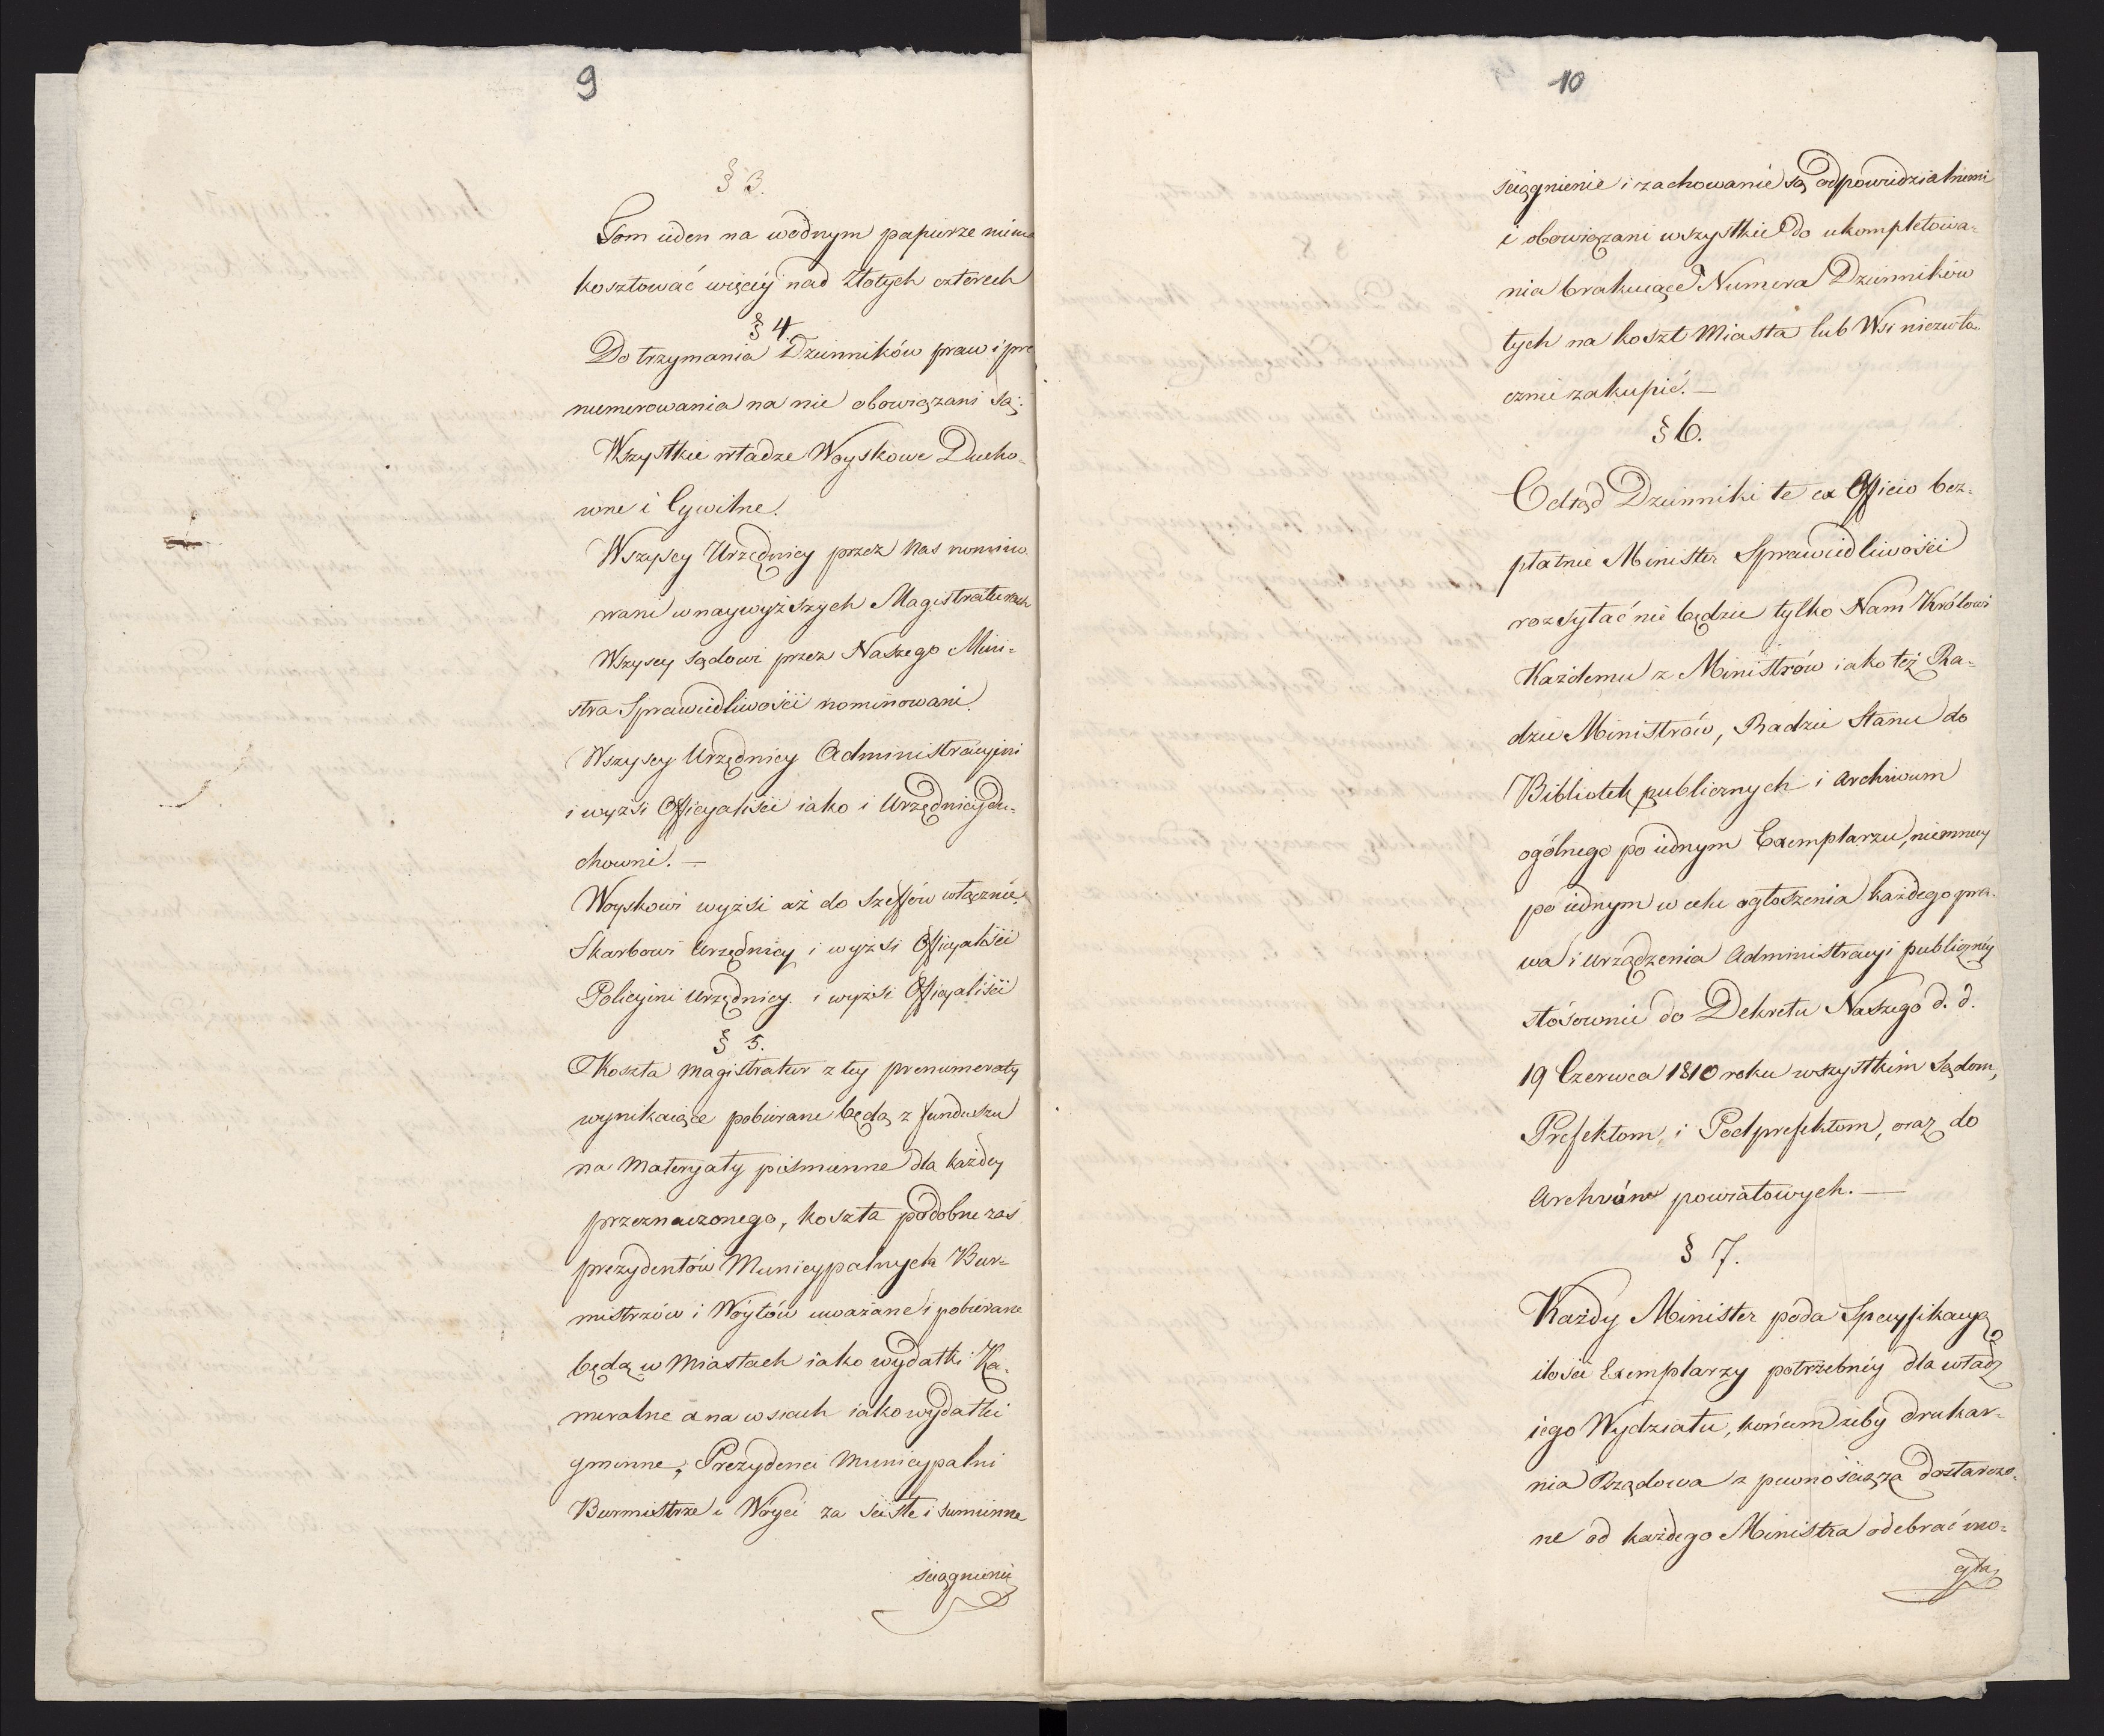 9
§ 3.
Tom ieden na wodnym papierze nima
kosztować więcéy nad Złotych czterech
§ 4.
Do trzymania Dzienników praw i pre
numerowania na nie obowiązani są:
Wszystkie władze Woyskowe Ducho-
wne i Cywilne.
Wszyscy Urzędnicy przez Nas nomino-
wani w naywyższych Magistraturach
Wszyscy sądowi przez Naszego Mini-
stra Sprawiedliwości nominowani.
Wszyscy Urzędnicy Administracyjni
i wyżsi Officyaliści iako i Urzędnicy du-
chowni. —
Woyskowi wyżsi aż do Szeffów włącznie.
Skarbowi Urzędnicy i wyżsi Officyaliści
Policyini Urzędnicy i wyżsi Officyaliści
§ 5.
Koszta Magistratur z tey prenumeraty
wynikaiące pobierane będą z funduszu
na Materyały piśmienne dla każdey
przeznaczonego, koszta podobne zaś
prezydentów Municypalnych Bur-
mistrzów i Wóytów uważane i pobierane
będą w Miastach iako wydatki Ka-
meralne a na wsiach iako wydatki
gminne, Prezydenci Municypalni
Burmistrze i Wóyci za ściste i sumienne
ściągnienie
10
ściągnienie i zachowanie są odpowiedzialnemi
i obowiązani wszystkie do ukompletowa-
nia brakuiące Numera Dzienników
tych na koszt Miasta lub Wsi niezwło-
cznie zakupić. —
§ 6.
Odtąd Dzienniki te ex Officio bez-
płatnie Minister Sprawiedliwości
rozsyłać nie będzie tylko Nam Królowi
Każdemu z Ministrów iako też Ra-
dzie Ministrów, Radzie Stanu do
Bibliotek publicznych i Archiwum
ogólnego po iednym Exemplarzu, niemniey
po iednym w celu ogłoszenia każdego pra-
wa i urządzenia Administracyi publicznéy
stósownie do Dekretu Naszego d. d.
19 Czerwca 1810 roku wszystkim Sądom,
Prefektom, i Podprefektom, oraz do
Archiwów powiatowych. —
§ 7.
Każdy Minister poda Specyfikacyą
ilości Exemplarzy potrzebnéy dla władz
iego Wydziału, końcem żeby drukar-
nia Rządowa z pewnością za dostarczo-
ne od każdego Ministra odebrać mo-
gła